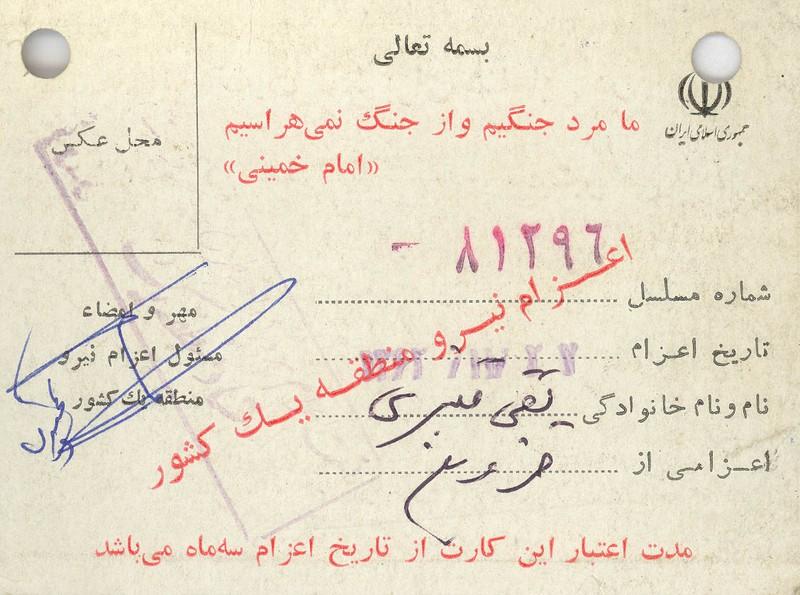 بسمه تعالی
جمهوری اسلامی ایران
ما مرد جنگیم و از جنگ نمی هراسیم
«امام خمینی»
محل عکس
شماره مسلسل ۸۱۲۹۶ -
تاریخ اعزام
نام و نام خانوادگی تقی
اعزامی از
مهر و امضاء
مسئول اعزام نیرو
منطقه یک کشور
اعزام نیرو منطقه یک کشور
مدت اعتبار این کارت از تاریخ اعزام سه ماه می باشد